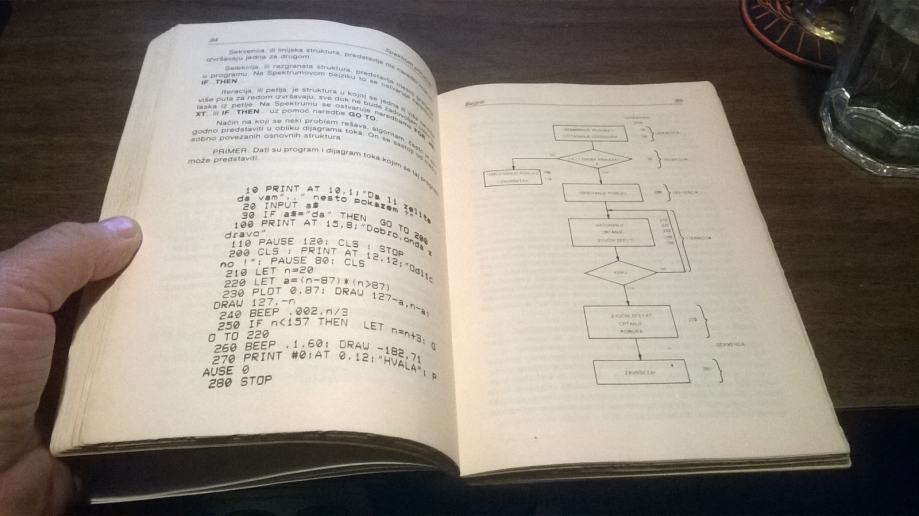 94
Sekvenca, ili linijska struktura, predstavlja niz naredbi
izvršavaju jedna za drugom.
Selekcija, ili razgranata struktura, predstavlja mesto
u programu. Na Spektrumovom bejziku to se ostvaruje
IF...THEN
Iteracija, ili petlja, je struktura u kojoj se jedna ili više
više puta za redom izvršavaju, sve dok ne bude
laska iz petlje. Na Spektrumu se ostvaruje naredbama
XT, ili IF...THEN... uz pomoć naredbe GO TO.
Način na koji se neki problem rešava, algoritam
godno predstaviti u obliku dijagrama toka. On se sastoji od
sobno povezanih osnovnih struktura.
PRIMER. Dati su program i dijagram toka kojim se taj program
može predstaviti.
10 PRINT AT 10,1;"Da li zelite
da vam",," nesto pokazem ?"
20 INPUT a$
30 IF a$="da" THEN GO TO 200
100 PRINT AT 15,8;"Dobro,onda z
dravo"
110 PAUSE 120: CLS : STOP
200 CLS : PRINT AT 12,12;"Odlic
no !": PAUSE 80: CLS
210 LET n=20
220 LET a=(n-87)*(n>87)
230 PLOT 0,87: DRAW 127-a,n-a:
DRAW 127,-n
240 BEEP .002,n/3
250 IF n<157 THEN LET n=n+3: G
O TO 220
260 BEEP .1,60: DRAW -182,71
270 PRINT #0;AT 0,12;"HVALA": P
AUSE 0
280 STOP
Bejzik
95
SEKVENCA
ITERACIJA
CRTANJE
ZVUČNI EFEKTI
ZVUČNI EFEKAT
CRTANJE
PORUKA
270
SEKVENCA
ZAVRŠETAK
280